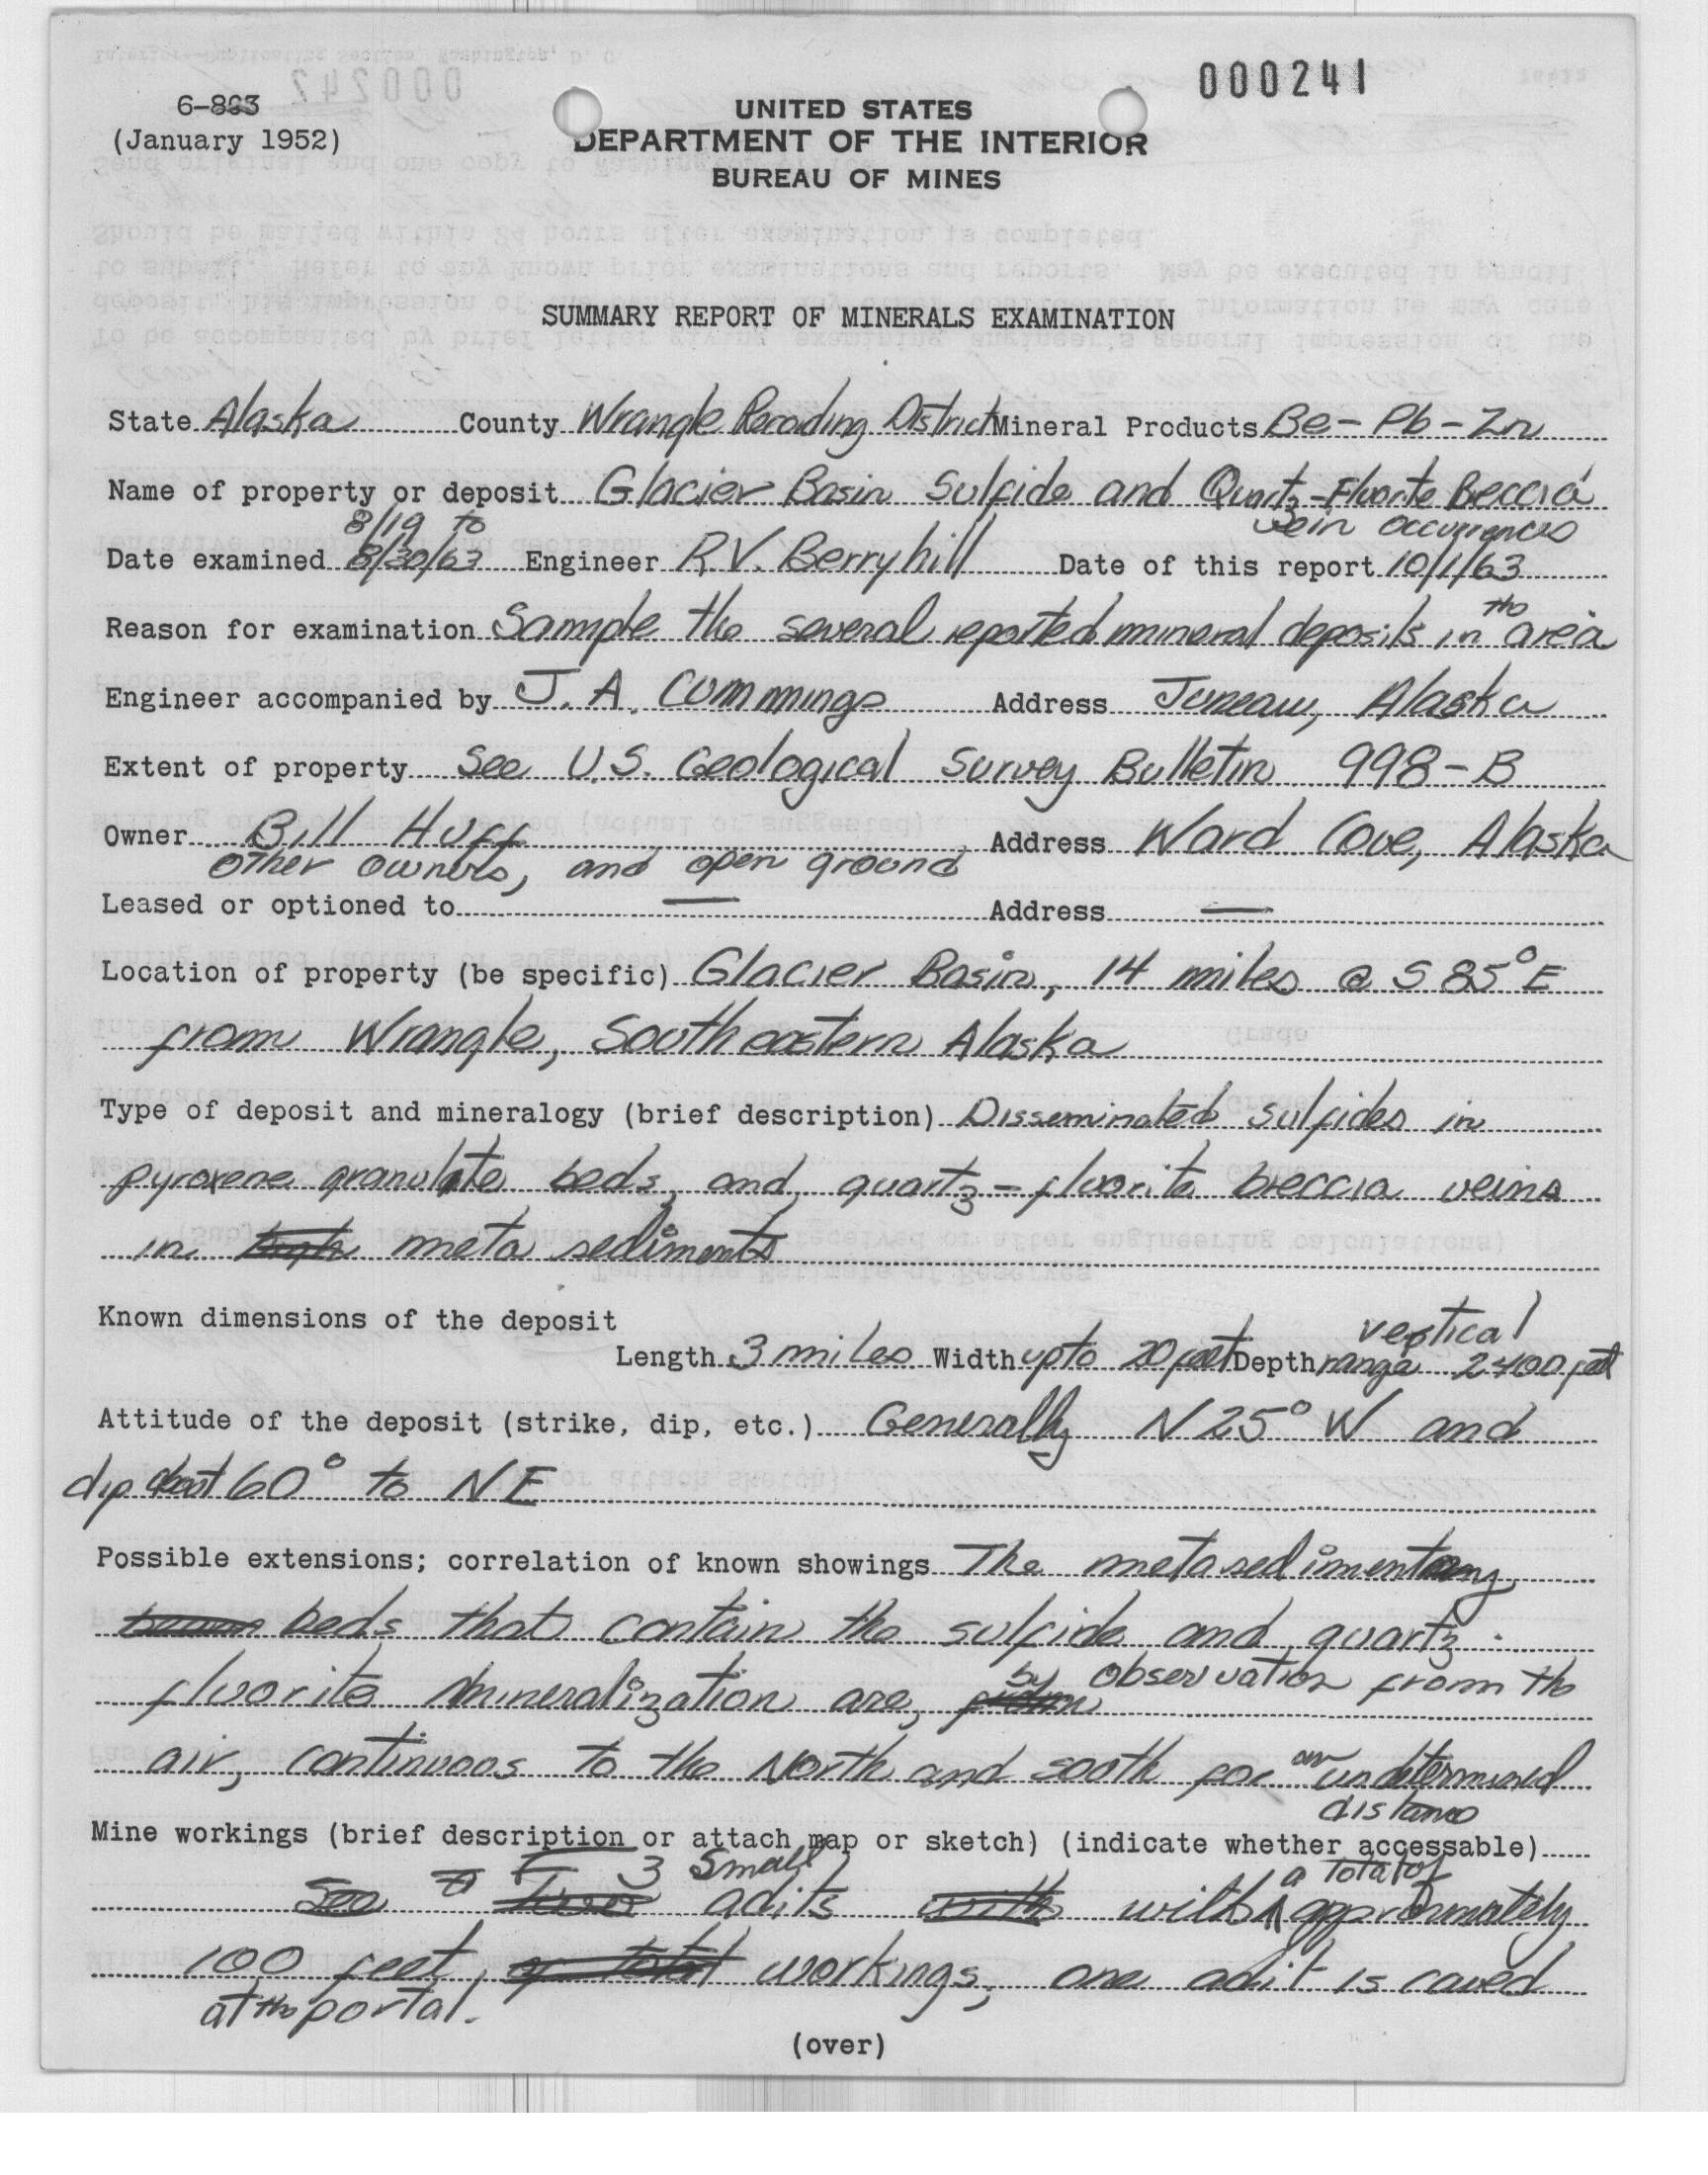 000241
6-863
(January 1952)
UNITED STATES
DEPARTMENT OF THE INTERIOR
BUREAU OF MINES
SUMMARY REPORT OF MINERALS EXAMINATION
State Alaska County Wrangle Recording District Mineral Products Be - Pb - Zn
Name of property or deposit Glacier Basin Sulfide and Quartz-Fluorite Beccia
vein occurrences
8/19 to
Date examined 8/30/63 Engineer R.V. Berryhill Date of this report 10/1/63
Reason for examination Sample the several reported mineral deposits in the area
Engineer accompanied by J. A. Cummings Address Juneau, Alaska
Extent of property See U.S. Geological Survey Bulletin 998-B
Owner Bill Huff Address Ward Cove, Alaska
other owners, and open ground
Leased or optioned to — Address —
Location of property (be specific) Glacier Basin, 14 miles @ S 85° E
from Wrangle, Southeastern Alaska
Type of deposit and mineralogy (brief description) Disseminated sulfides in
pyroxene granulite beds, and quartz-fluorite breccia veins
in meta sediments
Known dimensions of the deposit
Length 3 miles Width up to 20 feet Depth vertical range 2400 feet
Attitude of the deposit (strike, dip, etc.) Generally N 25° W and
dip about 60° to NE
Possible extensions; correlation of known showings The metasedimentary
beds that contain the sulfide and quartz-
fluorite mineralization are, by observation from the
air, continuous to the North and south for an undetermined
distance
Mine workings (brief description or attach map or sketch) (indicate whether accessable)
3 small adits with a total of approximately
100 feet, workings, one adit is caved
at the portal.
(over)